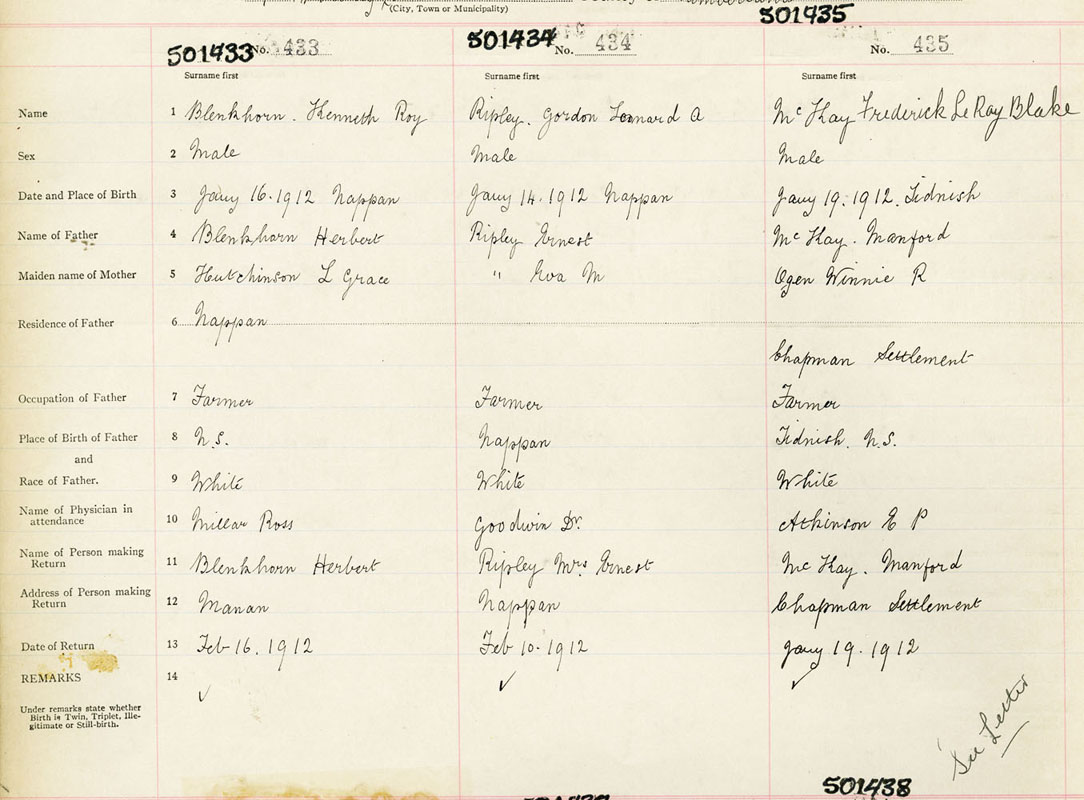 (City, Town or Municipality)
501433 No. 433
501434 No. 434
501435 No. 435
Surname first Surname first Surname first
Name 1 Blenkhorn. Kenneth Roy Ripley. Gordon Leonard A McKay Frederick LeRay Blake
Sex 2 Male Male Male
Date and Place of Birth 3 Jany 16. 1912 Nappan Jany 14. 1912 Nappan Jany 19. 1912. Tidnish
Name of Father 4 Blenkhorn Herbert Ripley Ernest McKay. Manford
Maiden name of Mother 5 Hutchinson L Grace " Eva M Ogen Winnie R
Residence of Father 6 Nappan
Chapman Settlement
Occupation of Father 7 Farmer Farmer Farmer
Place of Birth of Father 8 N.S. Nappan Tidnish. N.S.
and
Race of Father. 9 White White White
Name of Physician in
attendance 10 Millar Ross Goodwin Dr. Atkinson E P
Name of Person making
Return 11 Blenkhorn Herbert Ripley Mrs Ernest McKay. Manford
Address of Person making
Return 12 Manan Nappan Chapman Settlement
Date of Return 13 Feb 16. 1912 Feb 10. 1912 Jany 19. 1912
REMARKS 14 ✓ ✓ ✓
Under remarks state whether
Birth is Twin, Triplet, Ille-
gitimate or Still-birth.
See Letter
501438